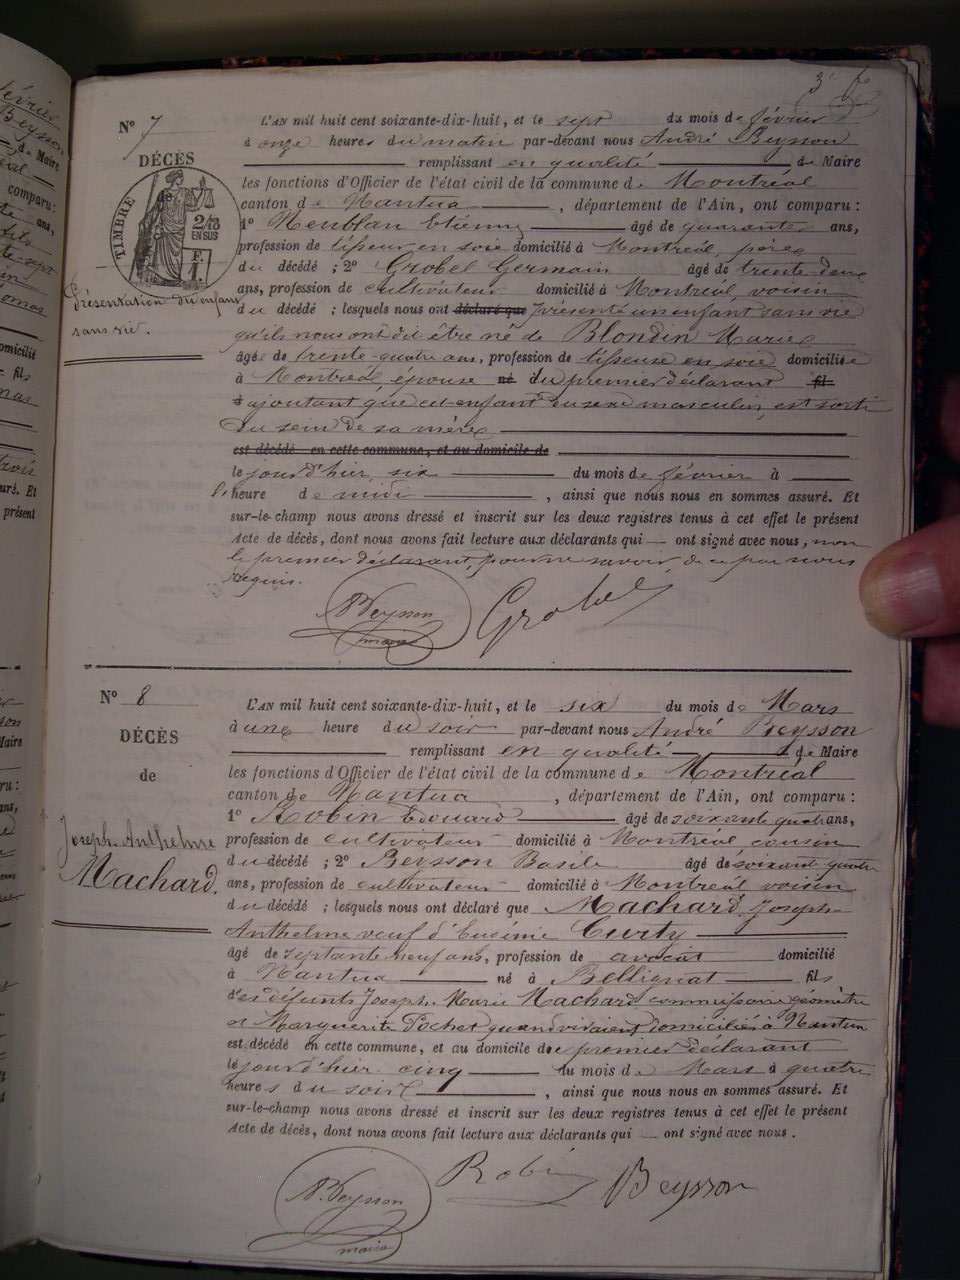 3
N° 7
DÉCÈS
de
TIMBRE
2/10
EN SUS
F.
1.
Présentation d'un enfant
sans vie.
L'AN mil huit cent soixante-dix-huit, et le sept du mois de février
à onze heures du matin par-devant nous André Beysson
remplissant en qualité de Maire
les fonctions d'Officier de l'état civil de la commune de Montréal
canton de Nantua, département de l'Ain, ont comparu :
1° Neublan Etienne âgé de quarante ans,
profession de tisseur en soie domicilié à Montréal, père
du décédé ; 2° Grobel Germain âgé de trente deux
ans, profession de cultivateur domicilié à Montréal, voisin
du décédé ; lesquels nous ont déclaré que présenté un enfant sans vie
qu'ils nous ont dit être né de Blondin Marie
âgée de trente-quatre ans, profession de tisseuse en soie domiciliée
à Montréal, épouse né du premier déclarant fil
ajoutant que cet enfant du sexe masculin, est sorti
du sein de sa mère
est décédé en cette commune, et au domicile de
le jour d'hier, six du mois de février à
l'heure de midi, ainsi que nous nous en sommes assuré. Et
sur-le-champ nous avons dressé et inscrit sur les deux registres tenus à cet effet le présent
Acte de décès, dont nous avons fait lecture aux déclarants qui — ont signé avec nous, non
le premier déclarant, pour ne savoir, de ce par nous
requis.
Beysson
maire
Grobel
N° 8
DÉCÈS
de
Joseph Anthelme
Machard.
L'AN mil huit cent soixante-dix-huit, et le six du mois de Mars
à une heure du soir par-devant nous André Beysson
remplissant en qualité de Maire
les fonctions d'Officier de l'état civil de la commune de Montréal
canton de Nantua, département de l'Ain, ont comparu :
1° Robin Edouard âgé de soixante quatre ans,
profession de cultivateur domicilié à Montréal, cousin
du décédé ; 2° Beysson Basile âgé de soixante quatre
ans, profession de cultivateur domicilié à Montréal voisin
du décédé ; lesquels nous ont déclaré que Machard, Joseph
Anthelme veuf d'Eugénie Curty
âgé de septante neuf ans, profession de avocat domicilié
à Nantua né à Bellignat fils
des défunts Joseph Marie Machard commissaire géomètre
et Marguerite Pochet quand vivaient domiciliés à Nantua
est décédé en cette commune, et au domicile du premier déclarant
le jour d'hier cinq du mois de Mars à quatre
heures du soir, ainsi que nous nous en sommes assuré. Et
sur-le-champ nous avons dressé et inscrit sur les deux registres tenus à cet effet le présent
Acte de décès, dont nous avons fait lecture aux déclarants qui — ont signé avec nous.
A. Beysson
maire
Robin
Beysson